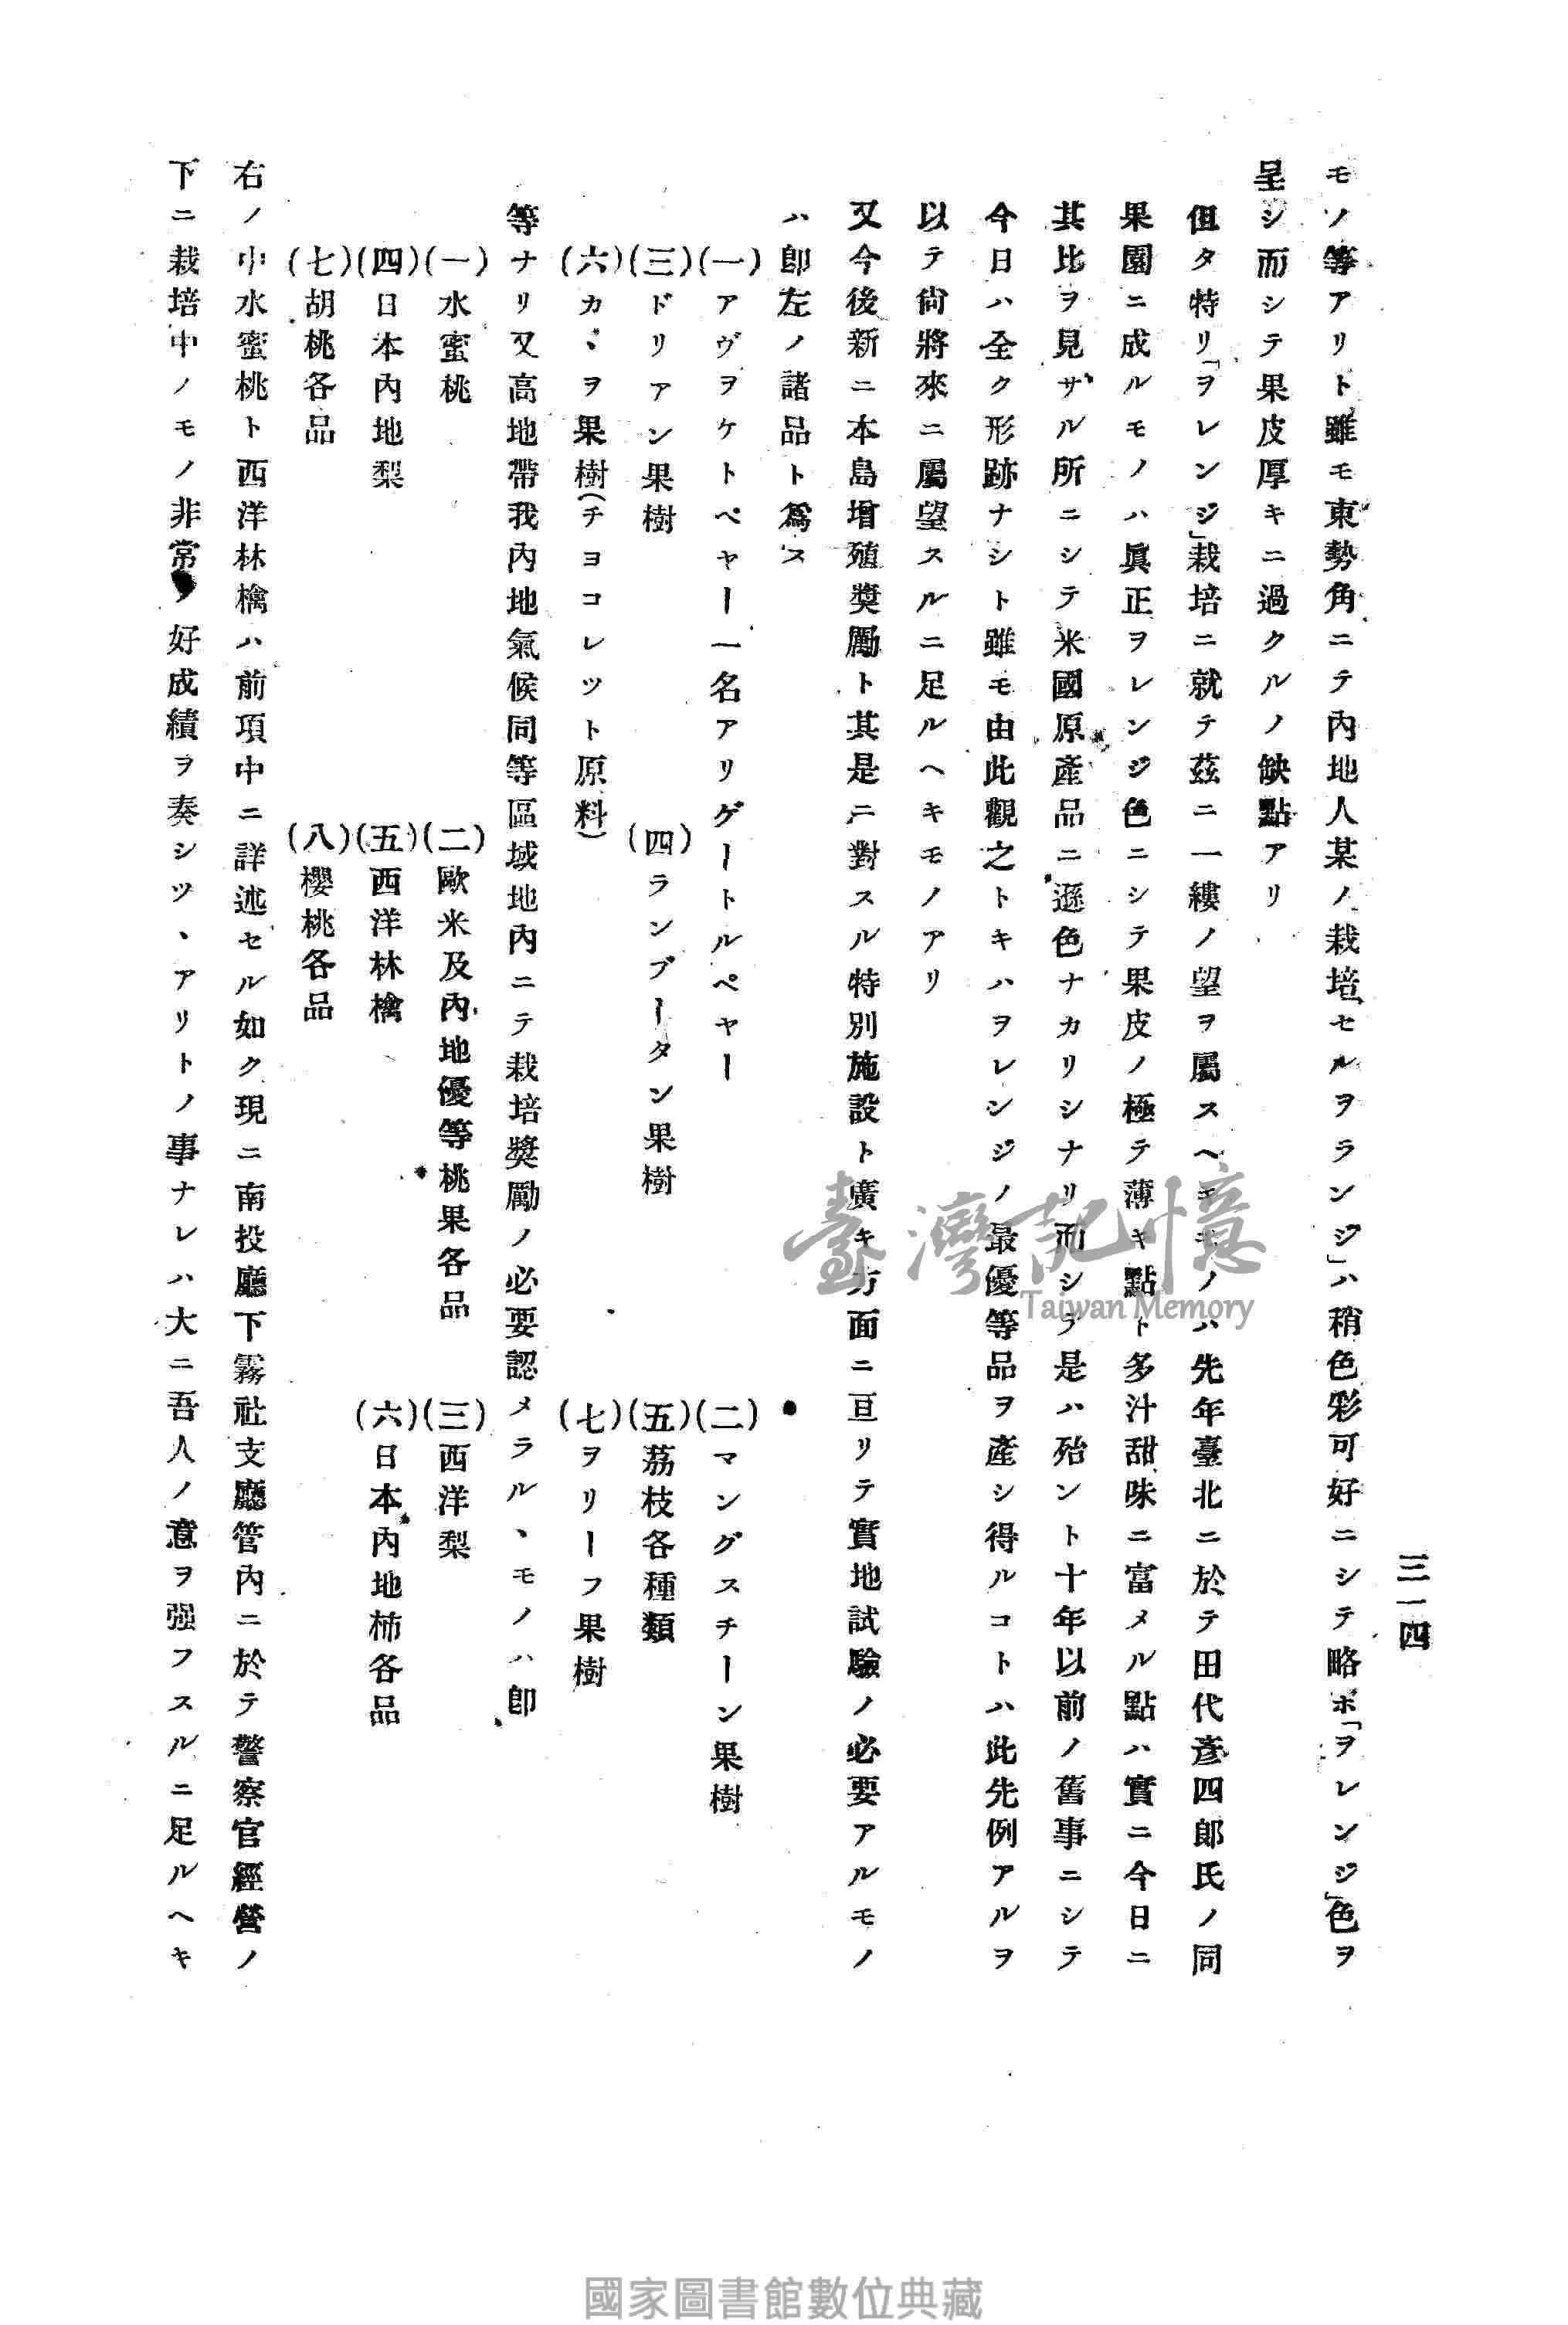 三一四
モソ等アリト雖モ東勢角ニテ内地人某ノ栽培セルヲランジ」ハ稍色彩可好ニシテ略ボ「ヲレンジ」色ヲ
呈シ而シテ果皮厚キニ過クルノ缺點アリ
但タ特リ「ヲレンジ」栽培ニ就テ茲ニ一縷ノ望ヲ屬スヘキモノハ先年臺北ニ於テ田代彥四郎氏ノ同
果園ニ成ルモノハ眞正ヲレンジ色ニシテ果皮ノ極テ薄キ點ト多汁甜味ニ富メル點ハ實ニ今日ニ
其比ヲ見サル所ニシテ米國原產品ニ遜色ナカリシナリ而シテ是ハ殆ント十年以前ノ舊事ニシテ
今日ハ全ク形跡ナシト雖モ由此觀之トキハヲレンジノ最優等品ヲ產シ得ルコトハ此先例アルヲ
以テ尙將來ニ屬望スルニ足ルヘキモノアリ
又今後新ニ本島增殖奬勵ト其是ニ對スル特別施設ト廣キ方面ニ亘リテ實地試驗ノ必要アルモノ
ハ卽左ノ諸品ト爲ス
(一)アヴヲケトペヤー一名アリゲートルペヤー (二)マングスチーン果樹
(三)ドリアン果樹 (四)ランブータン果樹 (五)茘枝各種類
(六)カヽヲ果樹(チヨコレツト原料) (七)ヲリーフ果樹
等ナリ又高地帶我内地氣候同等區域地内ニテ栽培奬勵ノ必要認メラルヽモノハ卽
(一)水蜜桃 (二)歐米及内地優等桃果各品 (三)西洋梨
(四)日本内地梨 (五)西洋林檎 (六)日本内地柿各品
(七)胡桃各品 (八)櫻桃各品
右ノ中水蜜桃ト西洋林檎ハ前項中ニ詳述セル如ク現ニ南投廳下霧社支廳管内ニ於テ警察官經營ノ
下ニ栽培中ノモノ非常ノ好成績ヲ奏シツヽアリトノ事ナレハ大ニ吾人ノ意ヲ强フスルニ足ルヘキ
臺灣記憶
Taiwan Memory
國家圖書館數位典藏